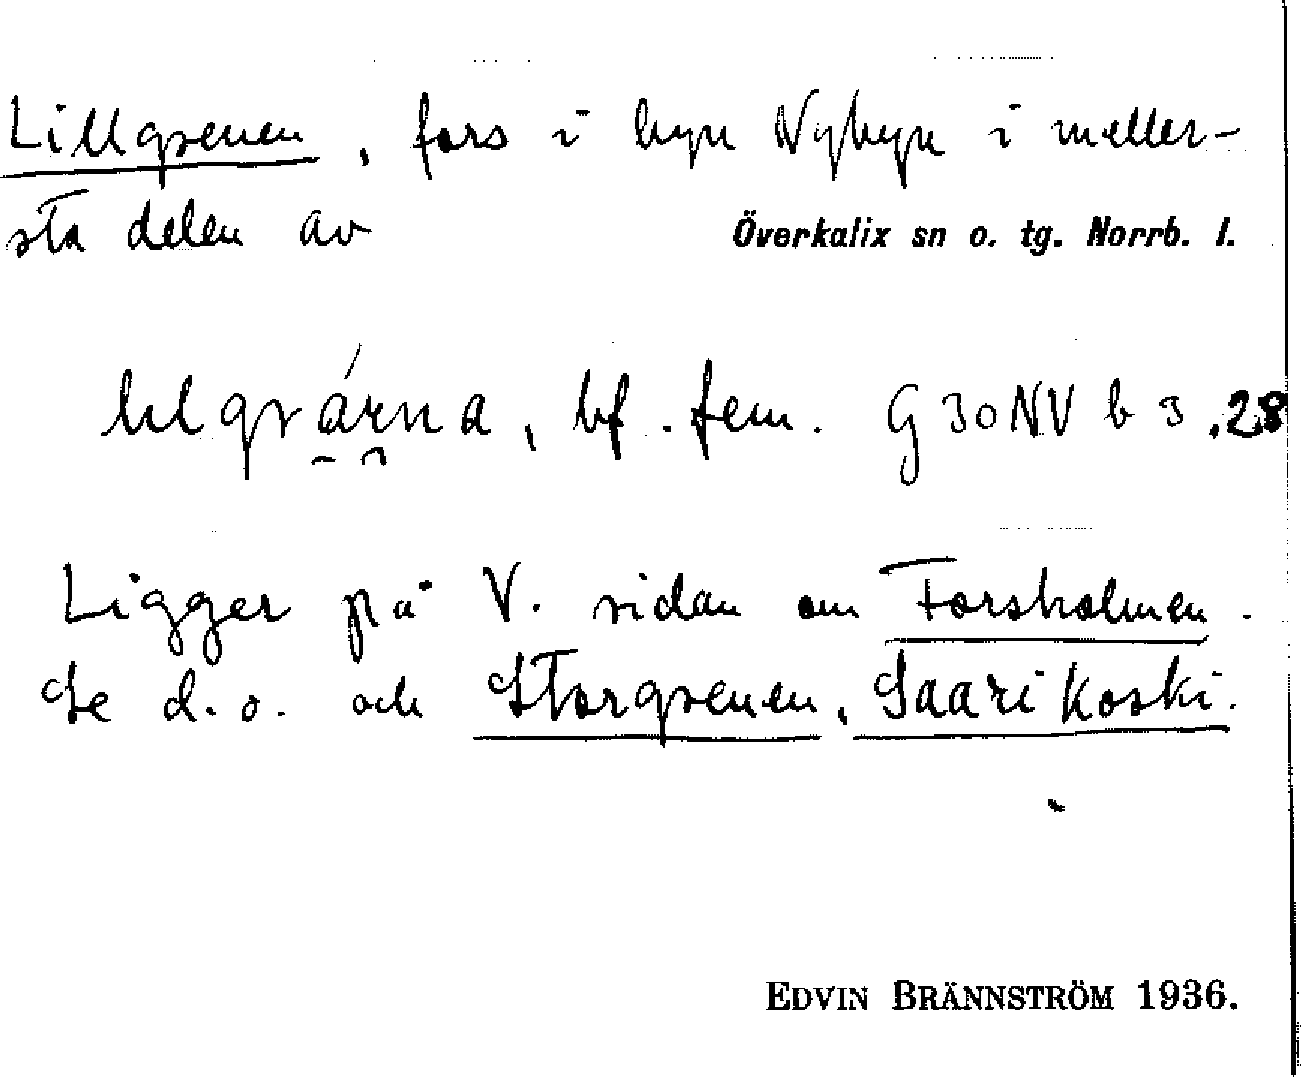 Lillgrenen, fors i byn Nybyn i meller-
sta delen av Överkalix sn o. tg. Norrb. l.
bf. fem. G 30 NV b 3.28
Ligger på V. sidan om Forsholmen.
Se d.o. och Storgrenen, Saarikoski.
EDVIN BRÄNNSTRÖM 1936.